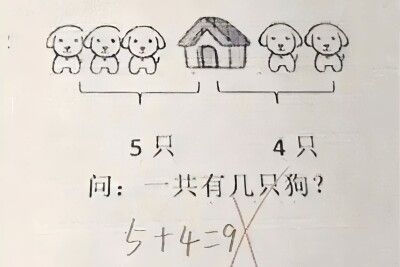 5只 4只
问：一共有几只狗？
5+4=9